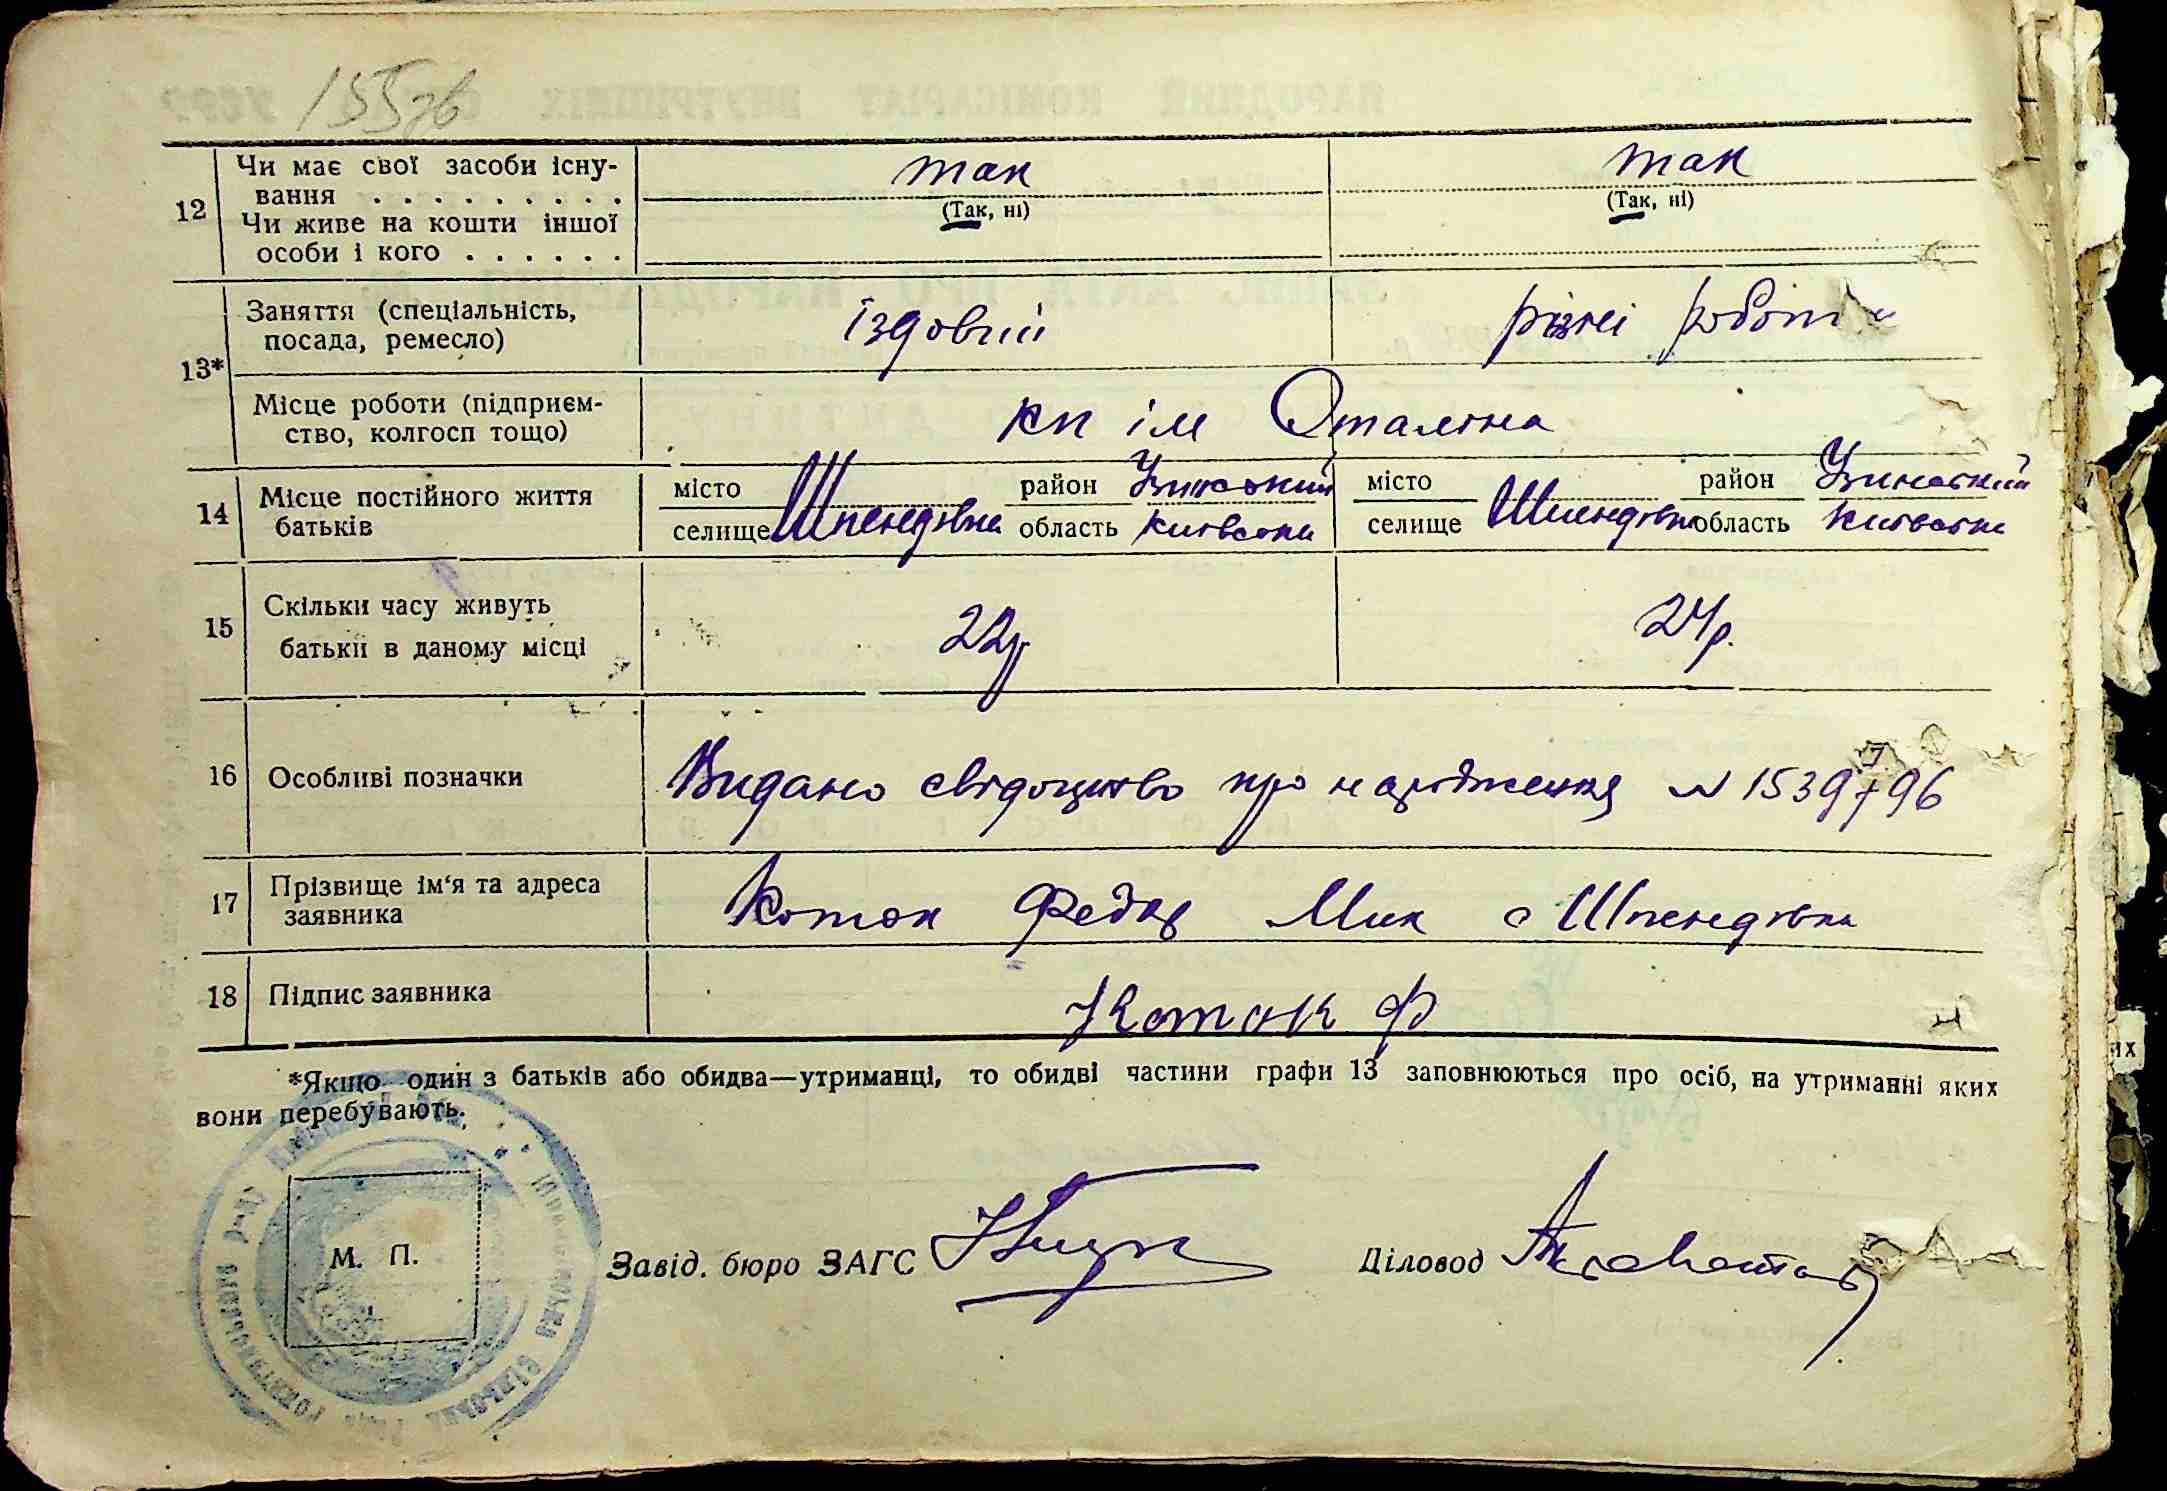 155зв
12 Чи має свої засоби існу-
вання . . . . . . . . .
Чи живе на кошти іншої
особи і кого . . . . . .
так
(Так, ні)
так
(Так, ні)
13* Заняття (спеціальність,
посада, ремесло)
їздовий
різні роботи
Місце роботи (підприєм-
ство, колгосп тощо)
кп ім Сталіна
14 Місце постійного життя
батьків
місто район Узинський
селище Шпендівка область Київська
місто район Узинський
селище Шпендівка область Київська
15 Скільки часу живуть
батьки в даному місці
22р
24р.
16 Особливі позначки
Видано свідоцтво про народження N 1539796
7
17 Прізвище ім'я та адреса
заявника
Коток Федір Мик с Шпендівка
18 Підпис заявника
Коток Ф
*Якщо один з батьків або обидва—утриманці, то обидві частини графи 13 заповнюються про осіб, на утриманні яких
вони перебувають.
М. П.
Завід. бюро ЗАГС
Діловод